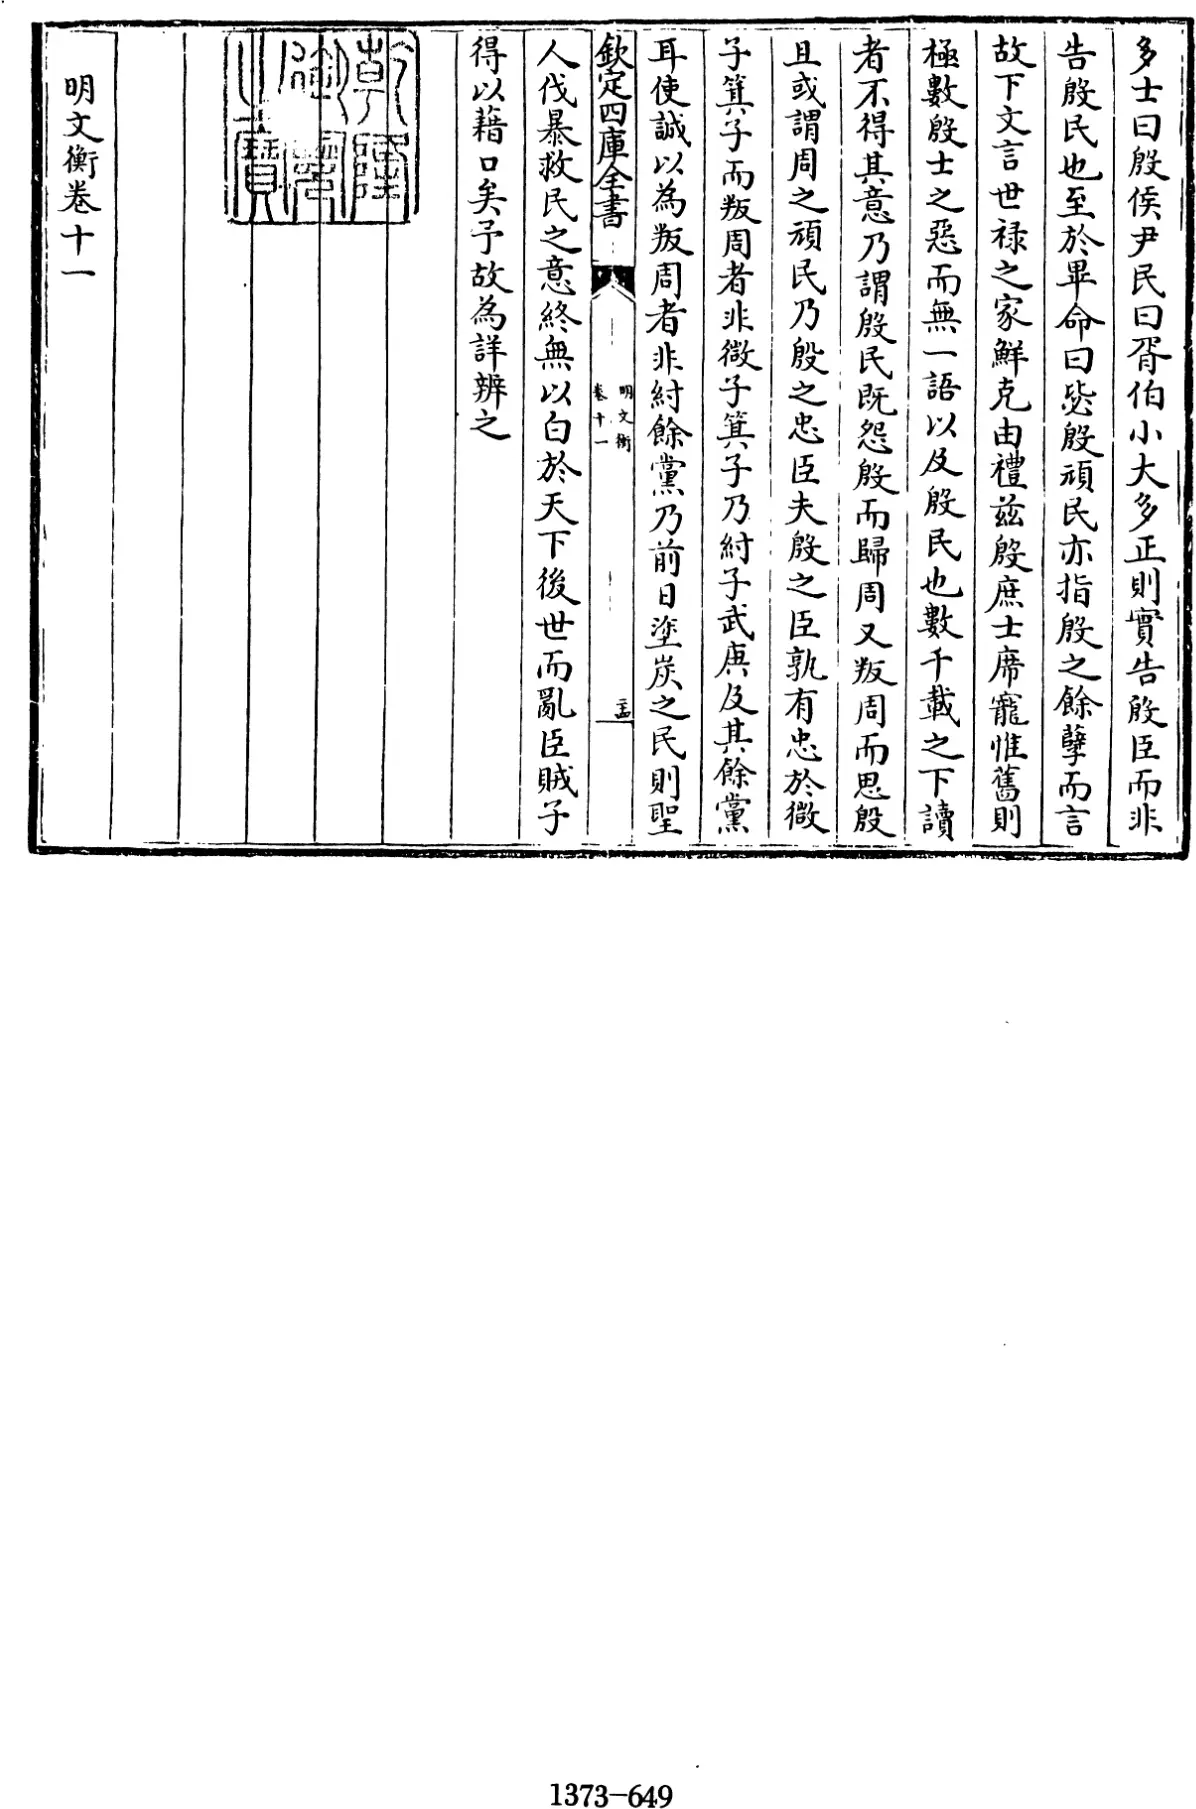 多士曰殷侯尹民曰胥伯小大多正則實告殷臣而非
告殷民也至於畢命曰毖殷頑民亦指殷之餘孽而言
故下文言世禄之家鮮克由禮兹殷庶士席寵惟舊則
極數殷士之惡而無一語以及殷民也數千載之下讀
者不得其意乃謂殷民既怨殷而歸周又叛周而思殷
且或謂周之頑民乃殷之忠臣夫殷之臣孰有忠於微
子箕子而叛周者非微子箕子乃紂子武庚及其餘黨
耳使誠以為叛周者非紂餘黨乃前日塗炭之民則聖
欽定四庫全書
明文衡
卷十一
人伐暴救民之意終無以白於天下後世而亂臣賊子
得以藉口矣予故為詳辨之
乾隆御覽之寶
明文衡卷十一
1373-649